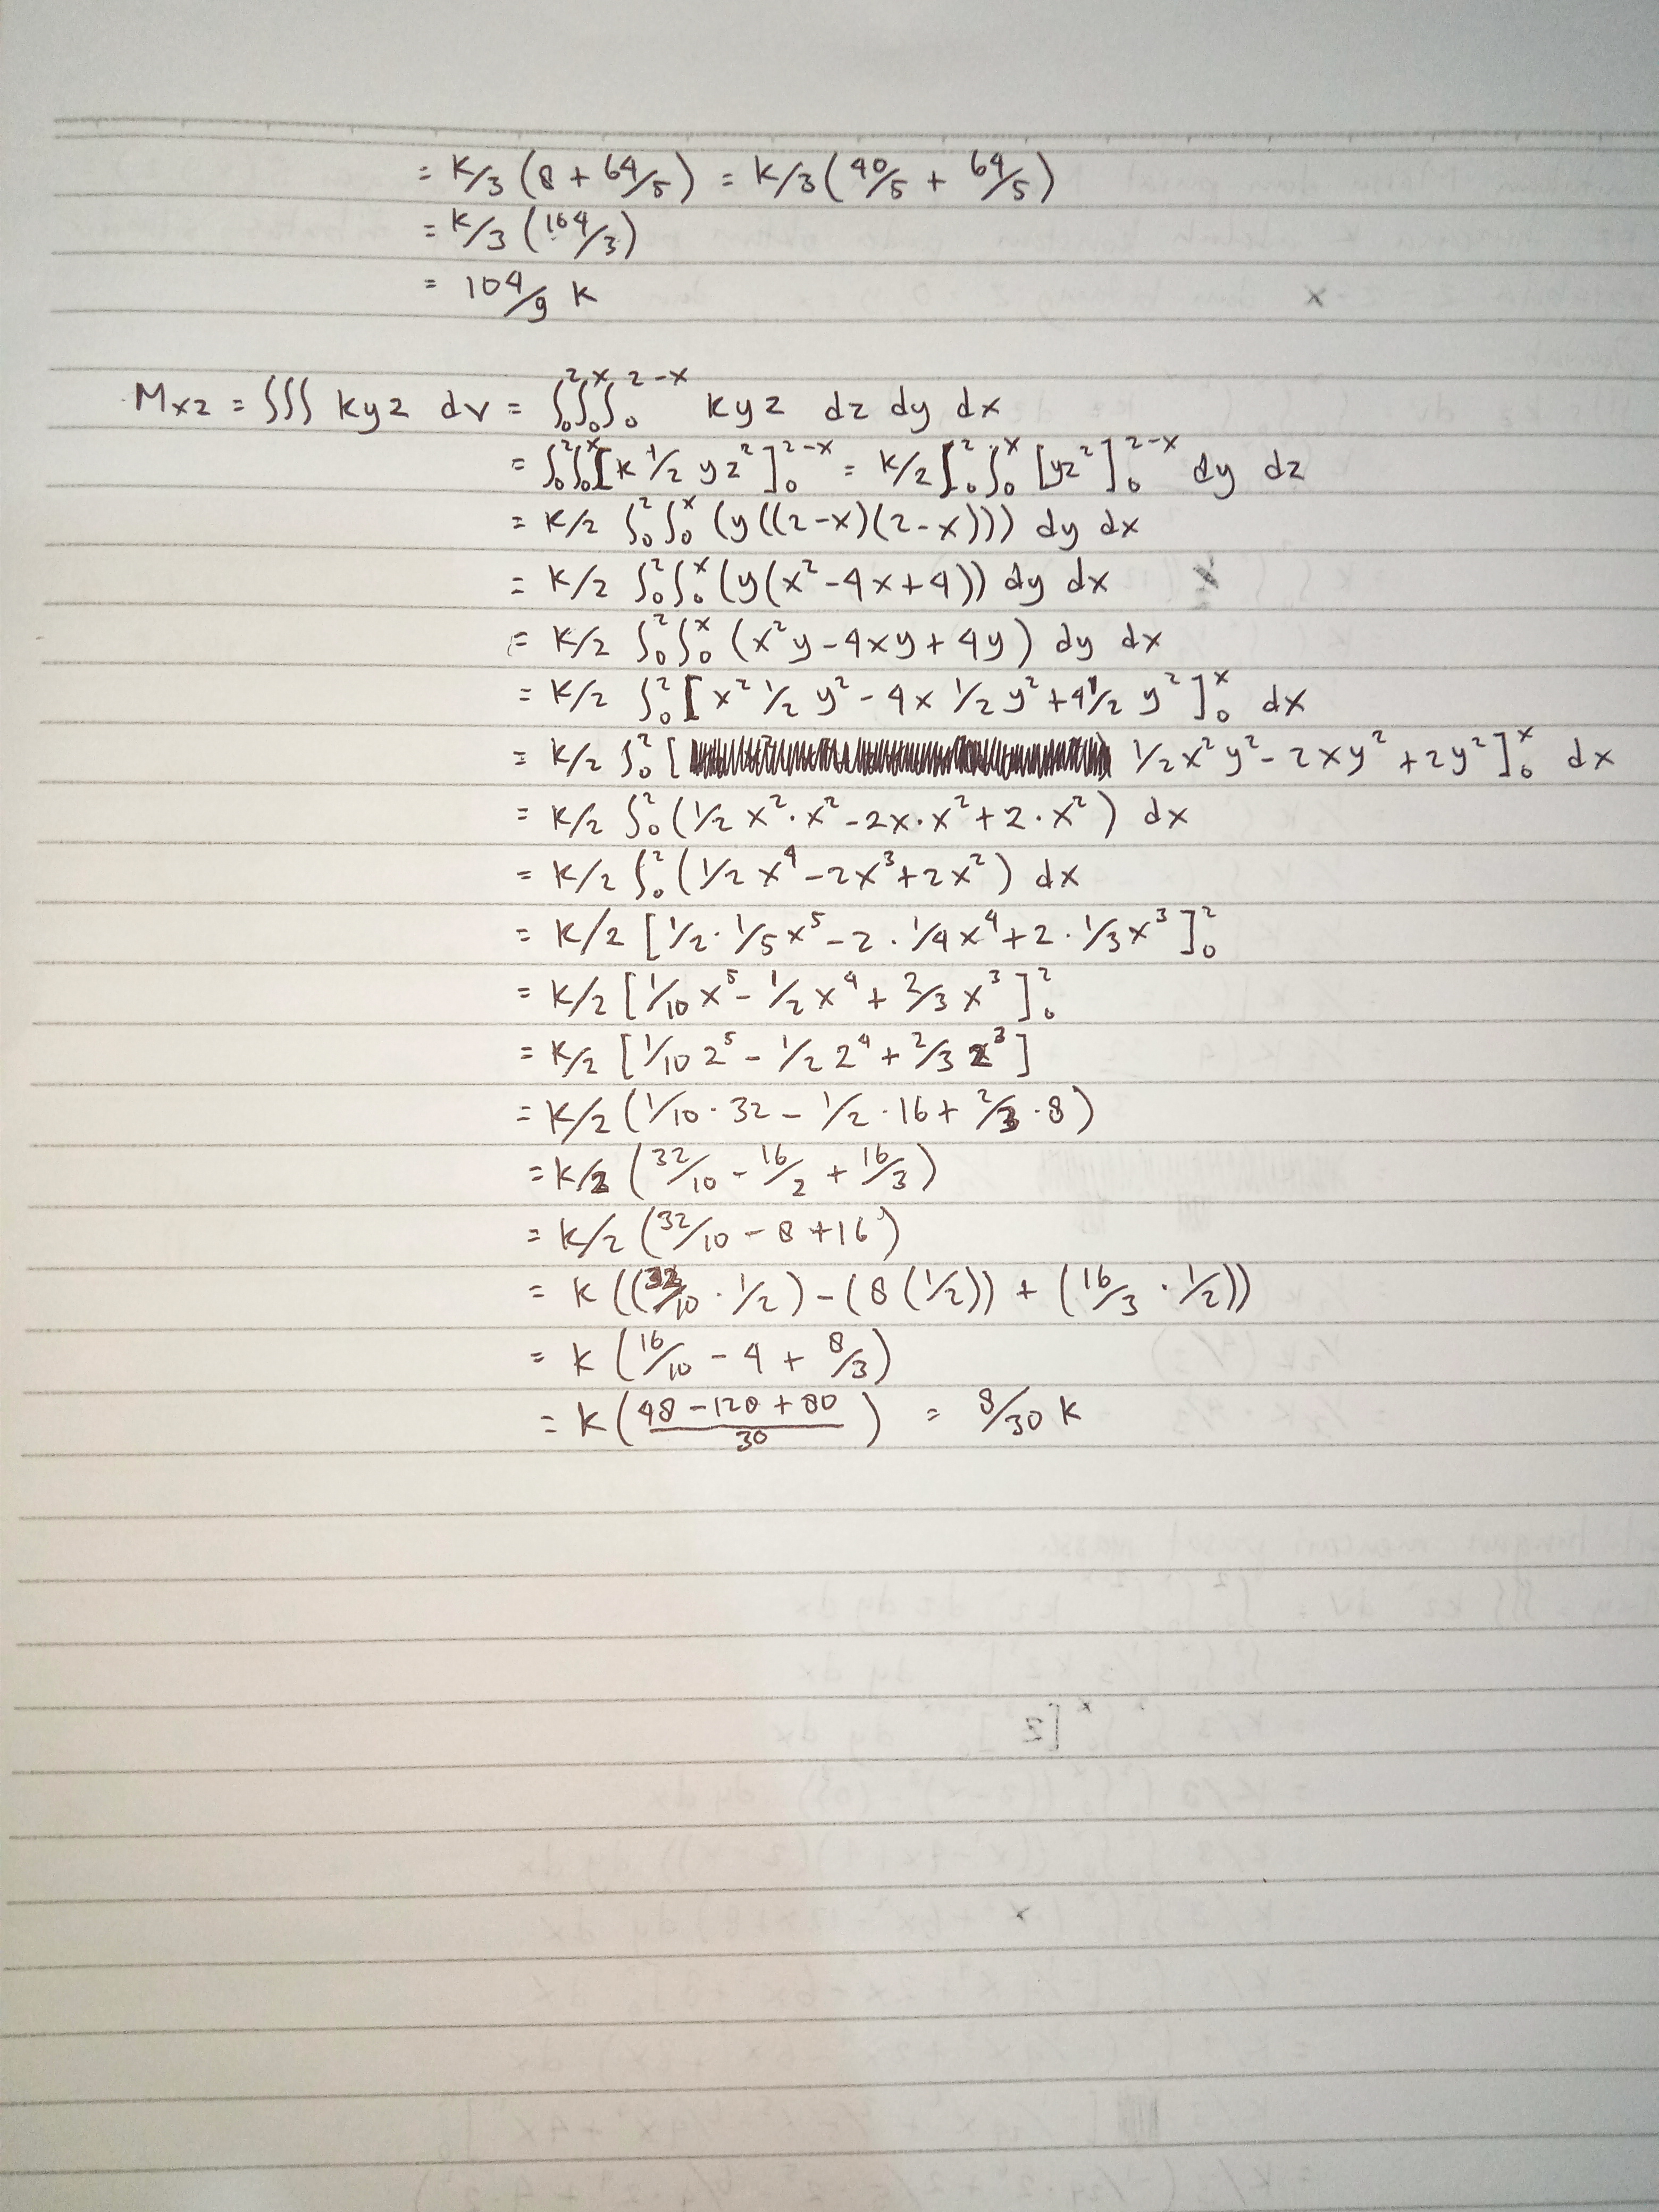 = K/3 (8 + 64/5) = K/3 (40/5 + 64/5)
= K/3 (104/3)
= 104/9 K
Mxz = ∫∫∫ kyz dv = ∫₀²∫₀ˣ∫₀²⁻ˣ kyz dz dy dx
= ∫₀²∫₀ˣ [k 1/2 yz²]₀²⁻ˣ = K/2 ∫₀²∫₀ˣ [yz²]₀²⁻ˣ dy dz
= K/2 ∫₀²∫₀ˣ (y((2-x)(2-x))) dy dx
= K/2 ∫₀²∫₀ˣ (y(x²-4x+4)) dy dx
= K/2 ∫₀²∫₀ˣ (x²y-4xy+4y) dy dx
= K/2 ∫₀² [x² 1/2 y² - 4x 1/2 y² + 4 1/2 y²]₀ˣ dx
= K/2 ∫₀² [1/2 x²y² - 2xy² + 2y²]₀ˣ dx
= K/2 ∫₀² (1/2 x²·x² - 2x·x² + 2·x²) dx
= K/2 ∫₀² (1/2 x⁴ - 2x³ + 2x²) dx
= K/2 [1/2 · 1/5 x⁵ - 2 · 1/4 x⁴ + 2 · 1/3 x³]₀²
= K/2 [1/10 x⁵ - 1/2 x⁴ + 2/3 x³]₀²
= K/2 [1/10 2⁵ - 1/2 2⁴ + 2/3 2³]
= K/2 (1/10 · 32 - 1/2 · 16 + 2/3 · 8)
= K/2 (32/10 - 16/2 + 16/3)
= K/2 (32/10 - 8 + 16)
= K ((32/10 · 1/2) - (8 (1/2)) + (16/3 · 1/2))
= K (16/10 - 4 + 8/3)
= K ((48 - 120 + 80)/30) = 8/30 K